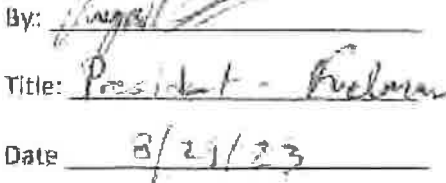 By:
Title: President -
Date 8/21/23